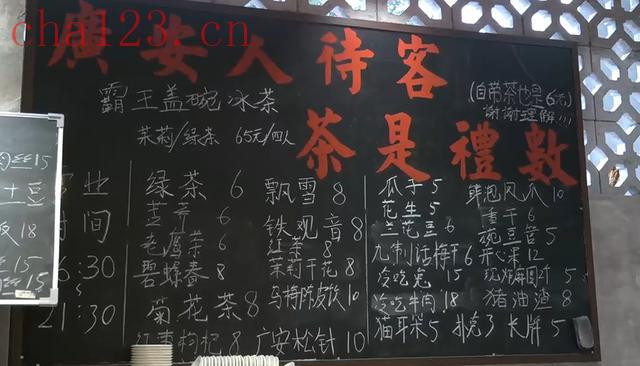 cha123.cn
廣安人待客
茶是禮數
霸王盖碗冰茶
(自带茶也是6元)
谢谢理解!!!
茉菊/绿茶 65元/四人
绿茶 6
老鹰茶 6
碧螺春 8
菊花茶 8
红枣枸杞 8
飘雪 8
铁观音 8
红茶 8
茉莉干花 8
乌梅陈皮饮 10
广安松针 10
瓜子 5
花生 5
兰花豆 6
九制话梅 6
冷吃兔 15
冷吃牛肉 18
猫耳朵 5
凤爪 10
香干 6
豌豆 5
开心果 12
5
猪油渣 8
扑克3 长牌 5
业
时间
16:30
21:30
15
土豆
18
15
15